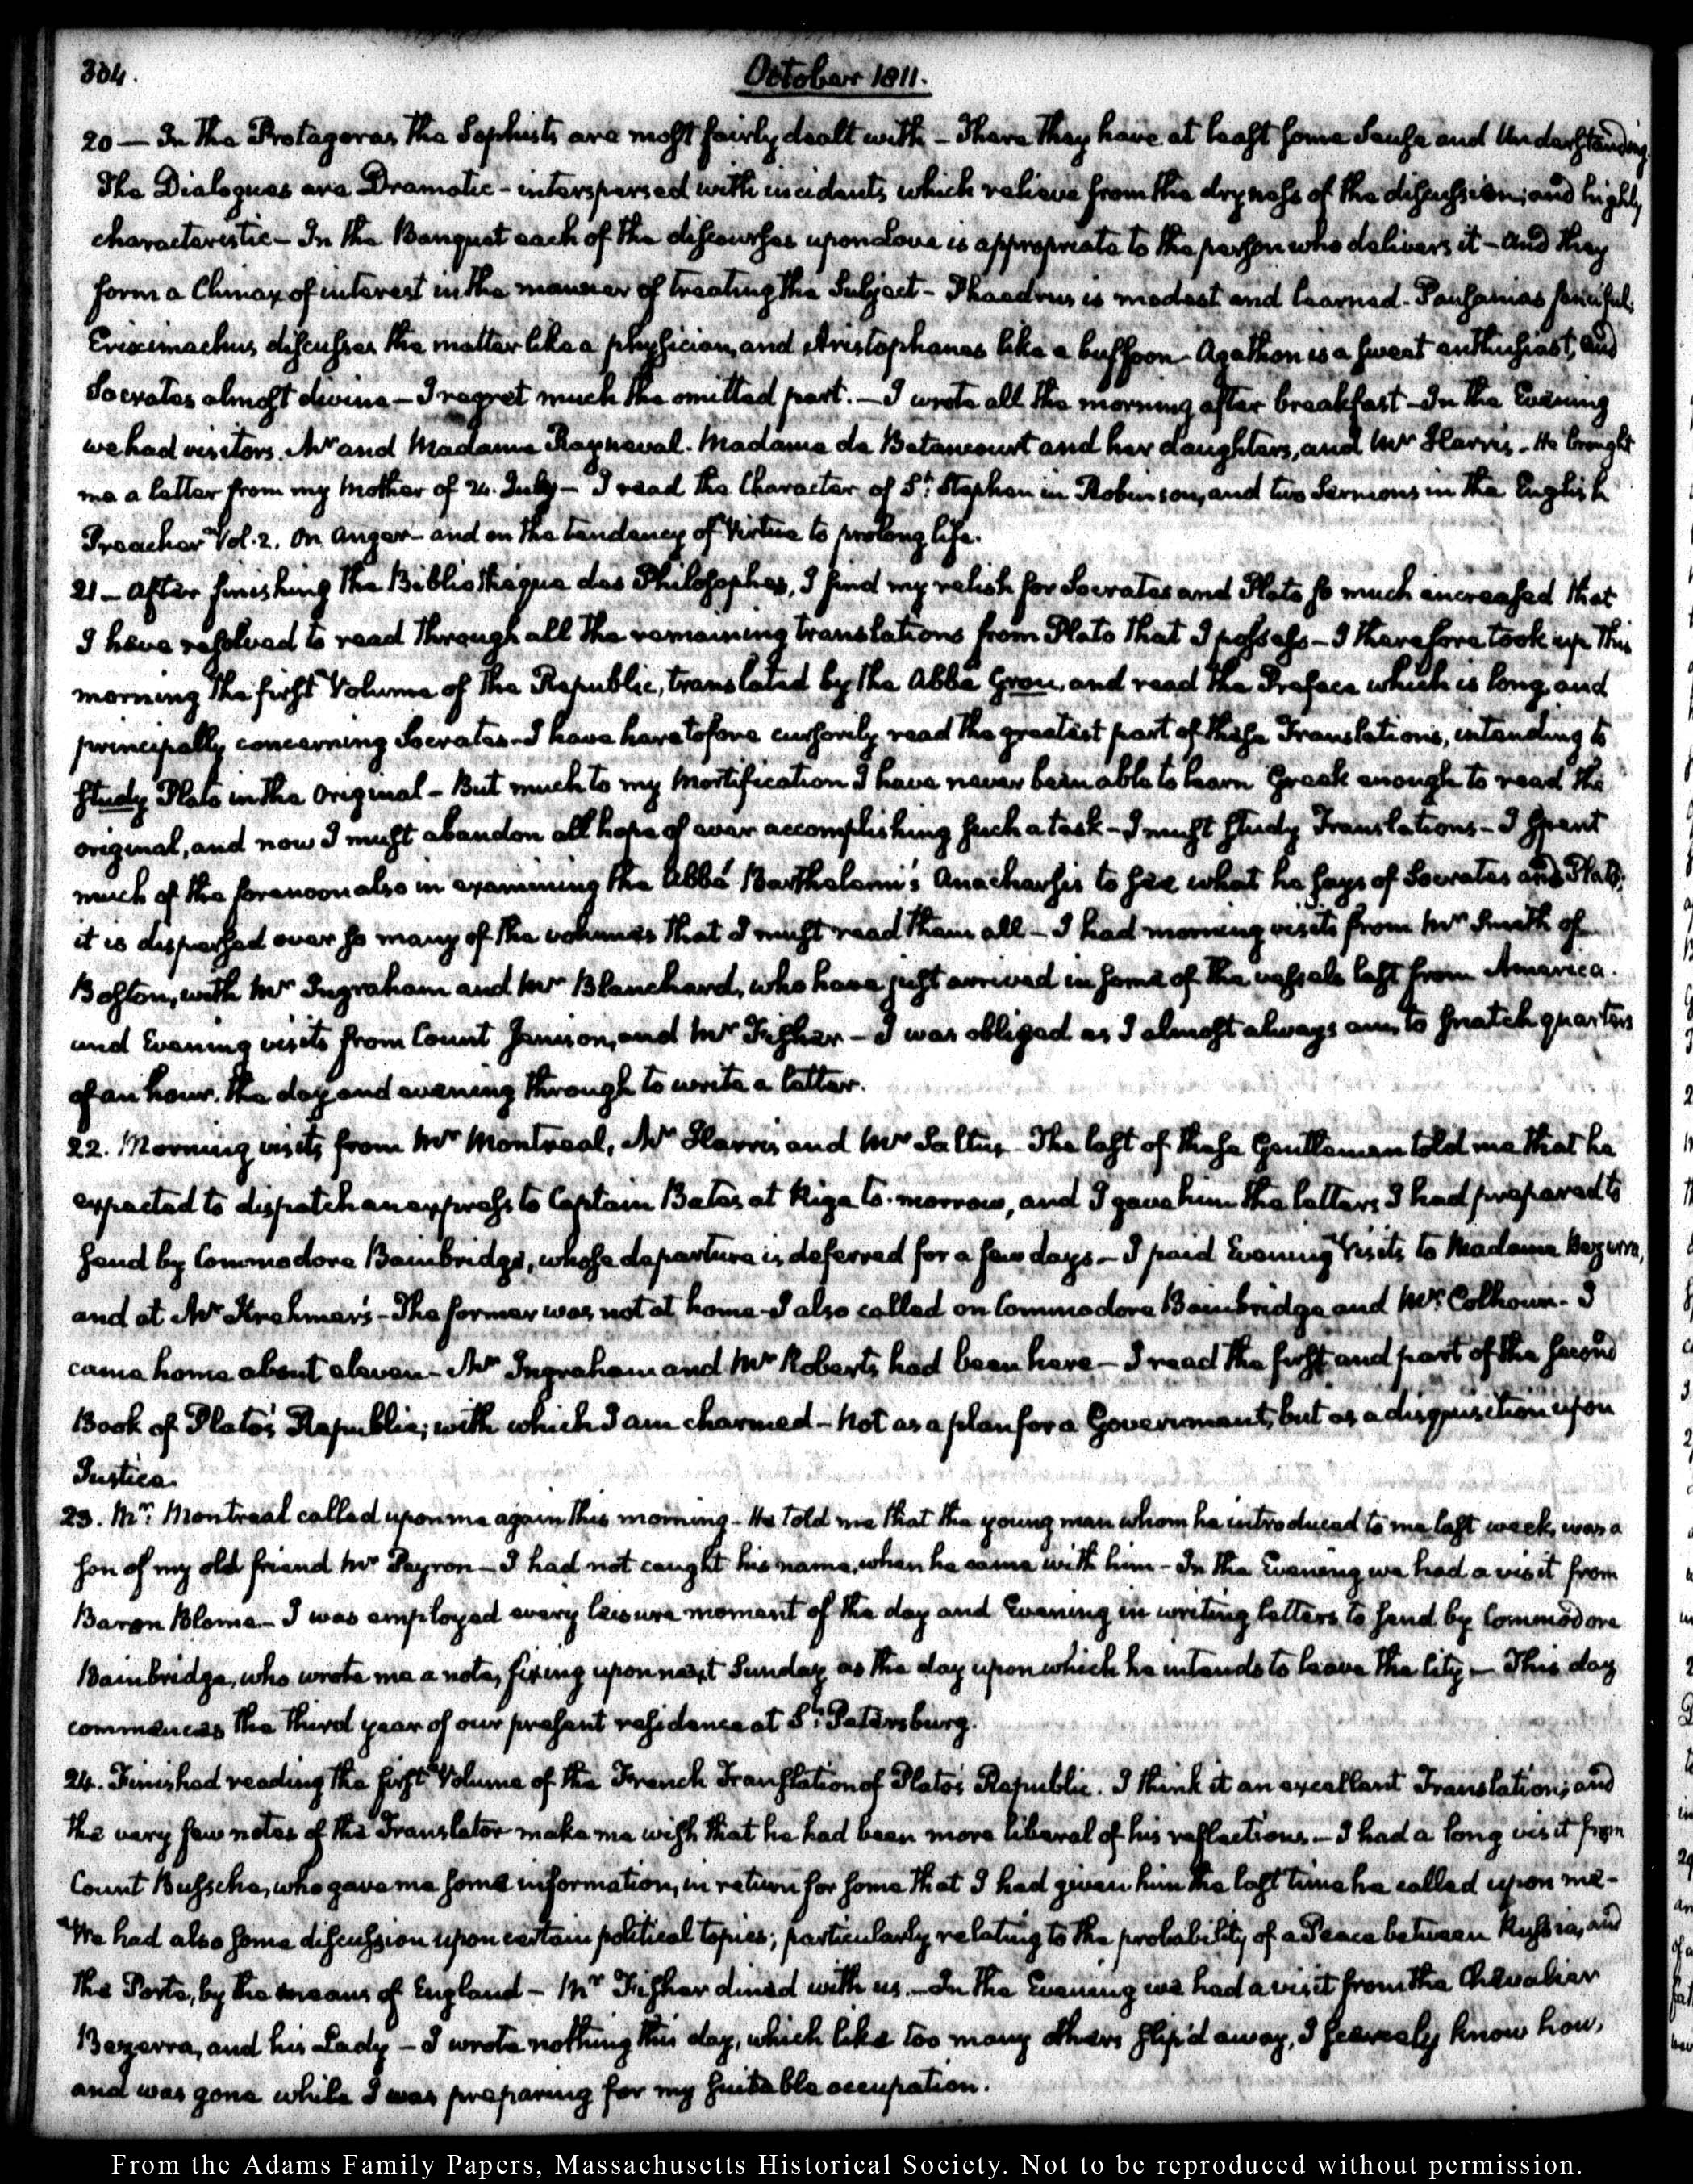 304.
October 1811.
20 — In the Protagoras the Sophists are most fairly dealt with - There they have at least some Sense and Understanding.
The Dialogues are Dramatic - interspersed with incidents which relieve from the dryness of the discussion; and highly
characteristic - In the Banquet each of the discourses upon Love is appropriate to the person who delivers it - and they
form a Climax of interest in the manner of treating the Subject - Phaedrus is modest and learned - Pausanias fanciful;
Eriximachus discusses the matter like a physician, and Aristophanes like a buffoon - Agathon is a sweet enthusiast, and
Socrates almost divine — I regret much the omitted part. — I wrote all the morning after breakfast - In the Evening
we had visitors. Mr and Madame Rayneval. Madame de Betancourt and her daughters, and Mr Harris - He brought
me a letter from my Mother of 24. July — I read the Character of St. Stephen in Robinson, and two Sermons in the English
Preacher Vol. 2. On Anger - and on the tendency of Virtue to prolong life.
21 — After finishing the Bibliotheque des Philosophes, I find my relish for Socrates and Plato so much increased that
I have resolved to read through all the remaining translations from Plato that I possess - I therefore took up this
morning the first Volume of the Republic, translated by the Abbé Grou, and read the Preface which is long, and
principally concerning Socrates - I have heretofore cursorily read the greatest part of these Translations, intending to
study Plato in the Original - But much to my Mortification I have never been able to learn Greek enough to read the
original, and now I must abandon all hope of ever accomplishing such a task - I must study Translations - I spent
much of the forenoon also in examining the Abbé Barthelemi's Anacharsis to see what he says of Socrates and Plato;
it is dispersed over so many of the volumes that I must read them all - I had morning visits from Mr Smith of
Boston, with Mr Ingraham and Mr Blanchard, who have just arrived in some of the vessels last from America.
and Evening visits from Count Jenison, and Mr Fisher - I was obliged as I almost always am, to snatch quarters
of an hour, the day and evening through to write a letter.
22. Morning visits from Mr Montreal, Mr Harris and Mr Saltus - The last of these Gentlemen told me that he
expected to dispatch an express to Captain Bates at Riga to-morrow, and I gave him the letters I had prepared to
send by Commodore Bainbridge, whose departure is deferred for a few days - I paid Evening Visits to Madame Bezerra,
and at Mr Krehmer's - The former was not at home - I also called on Commodore Bainbridge and Mr Colhoun - I
came home about eleven - Mr Ingraham and Mr Roberts had been here - I read the first and part of the second
Book of Plato's Republic; with which I am charmed - Not as a plan for a Government, but as a disquisition upon
Justice.
23. Mr. Montreal called upon me again this morning - He told me that the young man whom he introduced to me last week, was a
son of my old friend Mr Peyron - I had not caught his name, when he came with him - In the Evening we had a visit from
Baron Blome - I was employed every leisure moment of the day and Evening in writing letters to send by Commodore
Bainbridge, who wrote me a note, fixing upon next Sunday as the day upon which he intends to leave the City - This day
commences the third year of our present residence at St. Petersburg.
24. Finished reading the first Volume of the French Translation of Plato's Republic. I think it an excellent Translation; and
the very few notes of the Translator make me wish that he had been more liberal of his reflections - I had a long visit from
Count Bussche, who gave me some information, in return for some that I had given him the last time he called upon me -
We had also some discussion upon certain political topics; particularly relating to the probability of a Peace between Russia, and
the Porte, by the means of England - Mr Fisher dined with us. - In the Evening we had a visit from the Chevalier
Bezerra, and his Lady - I wrote nothing this day, which like too many others slip'd away, I scarcely know how,
and was gone while I was preparing for my suitable occupation.
From the Adams Family Papers, Massachusetts Historical Society. Not to be reproduced without permission.